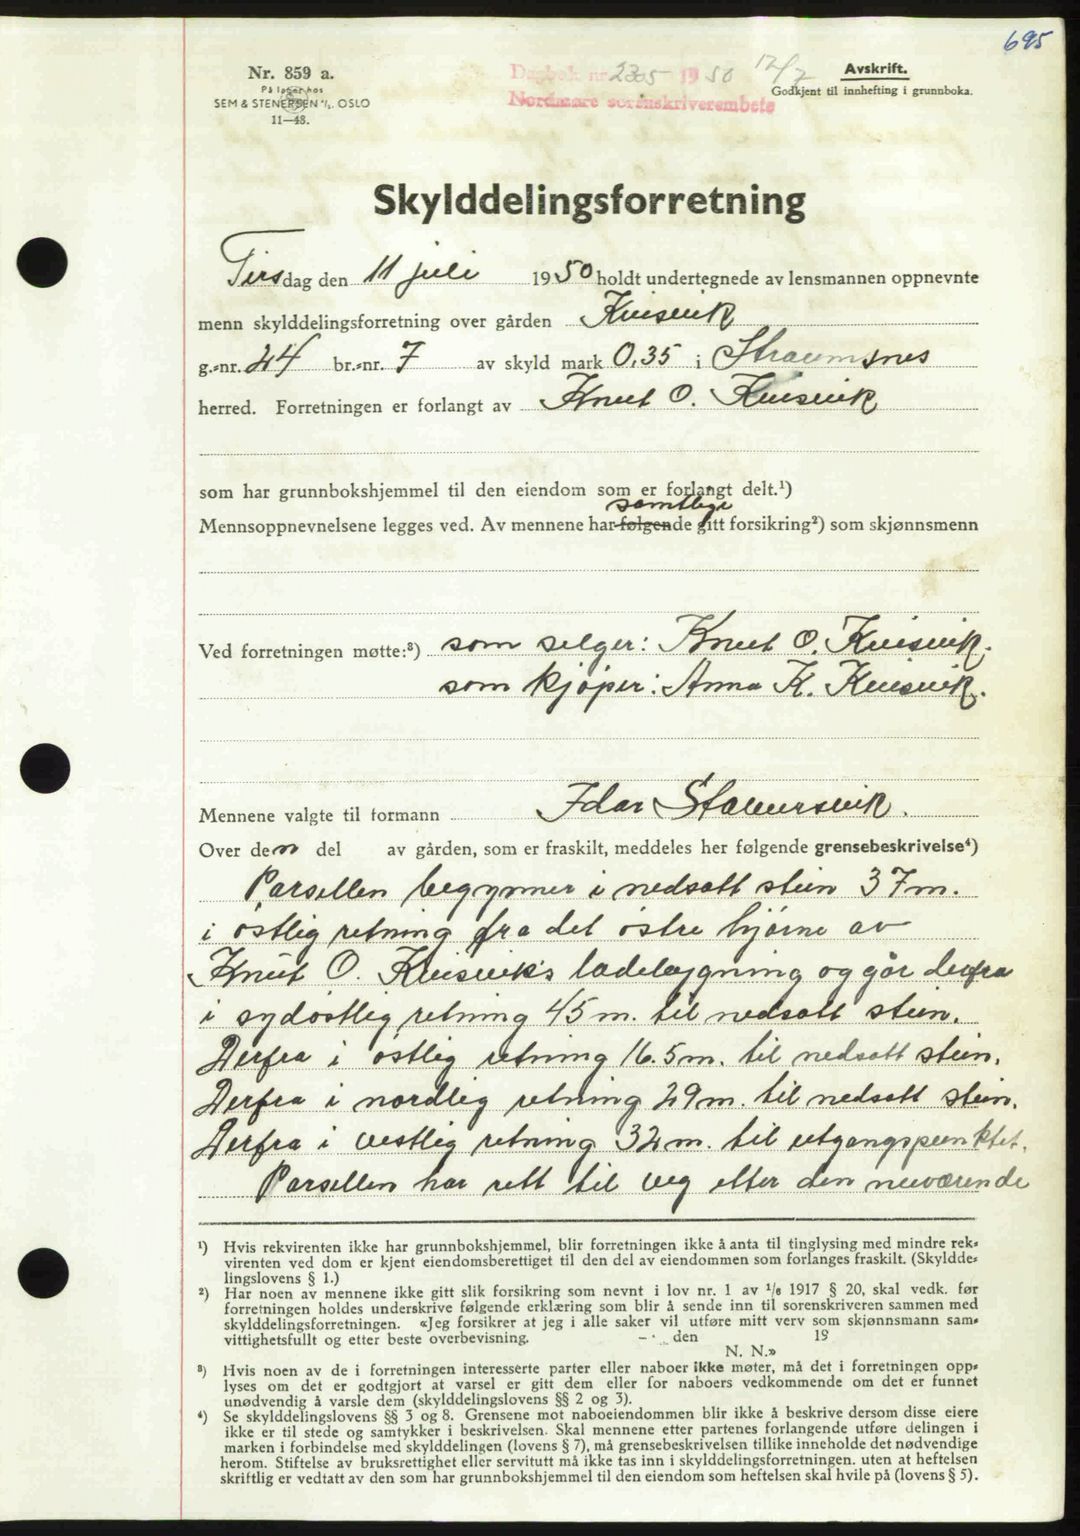 695
Nr. 859 a.
På lager hos
SEM & STENERSEN A/S. OSLO
11—48.
Dagbok nr 2305 1950 12/7
Nordmøre sorenskriverembete
Avskrift.
Godkjent til innhefting i grunnboka.
Skylddelingsforretning
Tirsdag den 11 juli 1950 holdt undertegnede av lensmannen oppnevnte
menn skylddelingsforretning over gården Kvisvik
g.-nr. 24 br.-nr. 7 av skyld mark 0,35 i Straumsnes
herred. Forretningen er forlangt av Knut O. Kvisvik
som har grunnbokshjemmel til den eiendom som er forlangt delt.¹)
samtlige
Mennsoppnevnelsene legges ved. Av mennene har følgende gitt forsikring²) som skjønnsmenn
Ved forretningen møtte:³) som selger: Knut O. Kvisvik.
som kjøper: Anna K. Kvisvik.
Mennene valgte til formann Idar Stavnesvik.
Over den del av gården, som er fraskilt, meddeles her følgende grensebeskrivelse⁴)
Parsellen begynner i nedsatt stein 37 m.
i østlig retning fra det østre hjørne av
Knut O. Kvisvik's ladebygning og går derfra
i sydøstlig retning 45 m. til nedsatt stein.
Derfra i østlig retning 16.5 m. til nedsatt stein.
Derfra i nordlig retning 29 m. til nedsatt stein.
Derfra i vestlig retning 32 m. til utgangspunktet.
Parsellen har rett til veg etter den nuværende
¹) Hvis rekvirenten ikke har grunnbokshjemmel, blir forretningen ikke å anta til tinglysing med mindre rek-
virenten ved dom er kjent eiendomsberettiget til den del av eiendommen som forlanges fraskilt. (Skyldde-
lingslovens § 1.)
²) Har noen av mennene ikke gitt slik forsikring som nevnt i lov nr. 1 av 1/6 1917 § 20, skal vedk. før
forretningen holdes underskrive følgende erklæring som blir å sende inn til sorenskriveren sammen med
skylddelingsforretningen. «Jeg forsikrer at jeg i alle saker vil utføre mitt verv som skjønnsmann sam-
vittighetsfullt og etter beste overbevisning. — den 19
N. N.»
³) Hvis noen av de i forretningen interesserte parter eller naboer ikke møter, må det i forretningen opp-
lyses om det er godtgjort at varsel er gitt dem eller for naboers vedkommende om det er funnet
unødvendig å varsle dem (skylddelingslovens §§ 2 og 3).
⁴) Se skylddelingslovens §§ 3 og 8. Grensene mot naboeiendommen blir ikke å beskrive dersom disse eiere
ikke er til stede og samtykker i beskrivelsen. Skal mennene etter partenes forlangende utføre delingen i
marken i forbindelse med skylddelingen (lovens § 7), må grensebeskrivelsen tillike inneholde det nødvendige
herom. Stiftelse av bruksrettighet eller servitutt må ikke tas inn i skylddelingsforretningen. uten at heftelsen
skriftlig er vedtatt av den som har grunnbokshjemmel til den eiendom som heftelsen skal hvile på (lovens § 5).